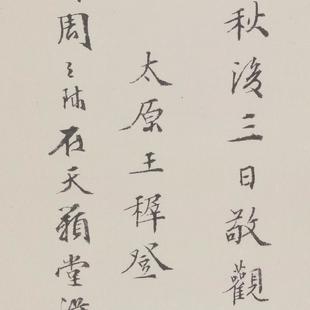 秋後三日敬觀
太原王穉登
周之
在天籟堂